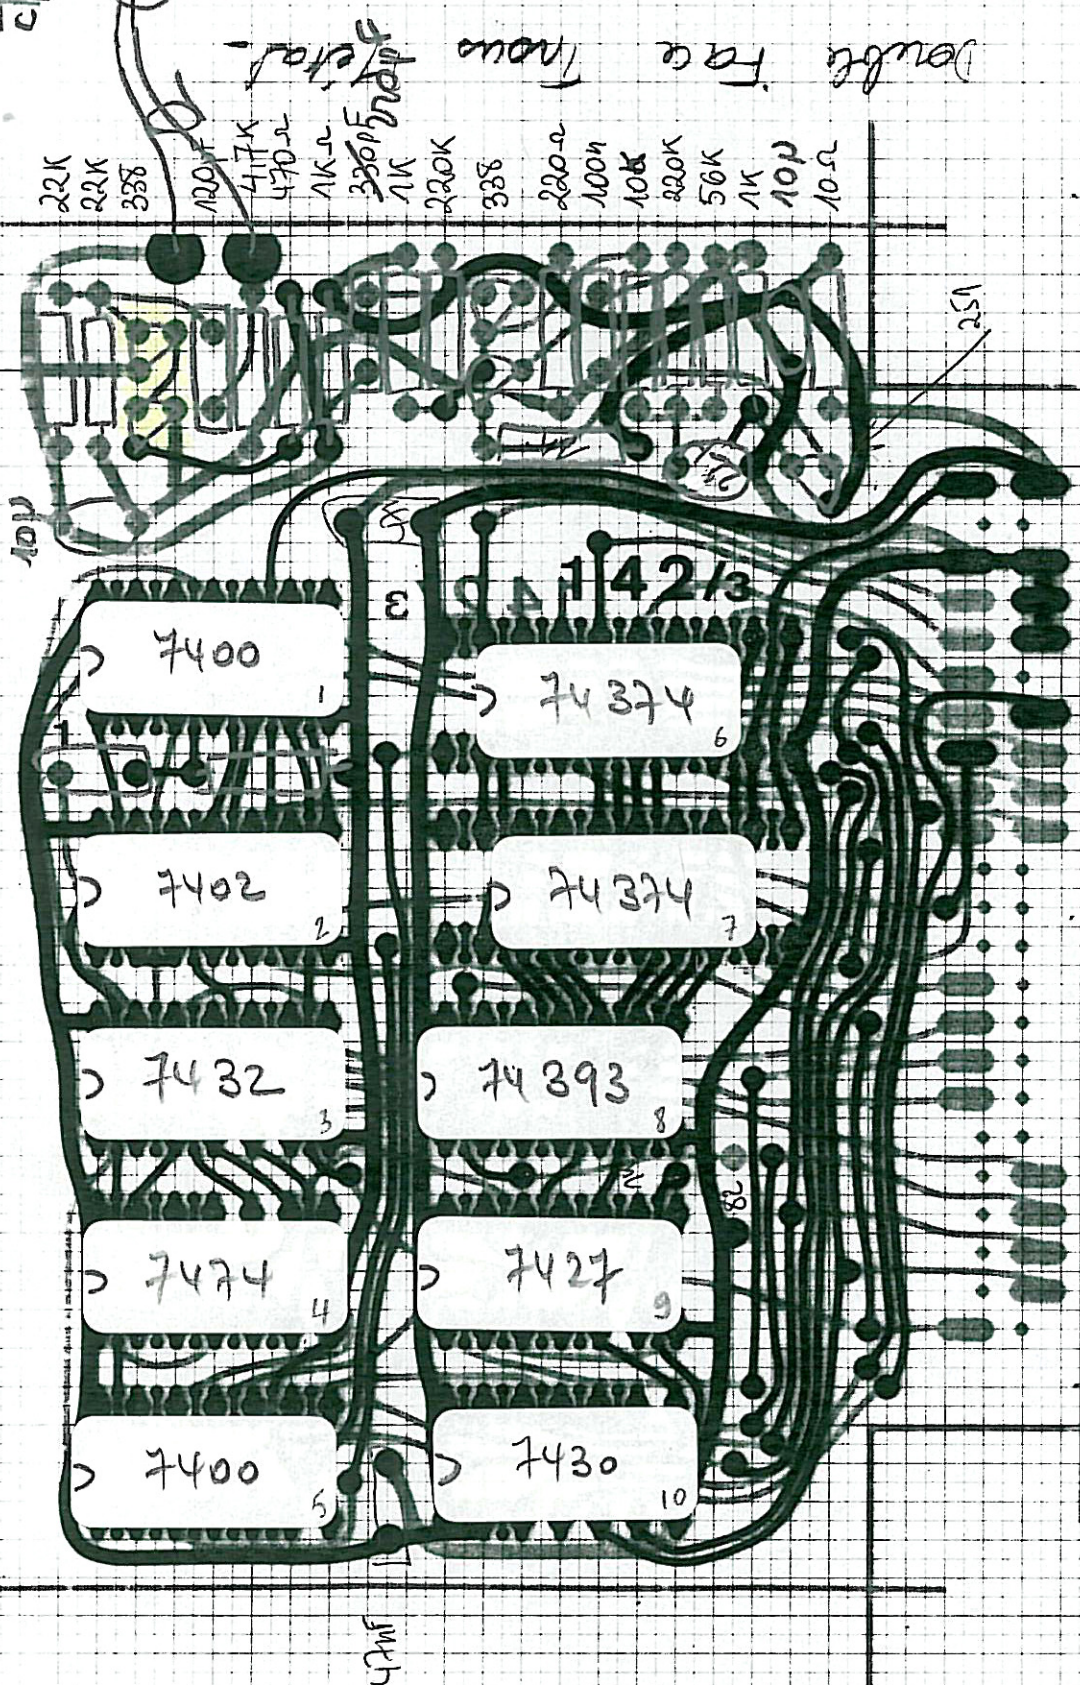 Double Face Trous Metal-
22K
22K
338
120nF
4,7K
470Ω
1KΩ
330pF
1K
220K
338
220Ω
100n
10K
220K
56K
1K
10µ
10Ω
10µ
142/3
7400
1
74374
6
7402
2
74374
7
7432
3
74393
8
82
7474
4
7427
9
7400
5
7430
10
47nF